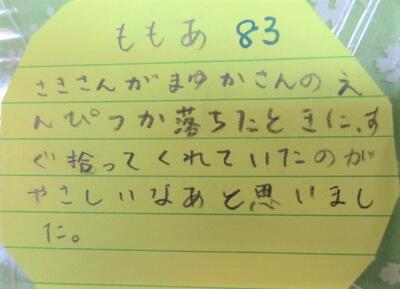 ももあ 83
さきさんがまゆかさんのえ
んぴつか落ちたときに、す
ぐ拾ってくれていたのが
やさしいなあと思いまし
た。